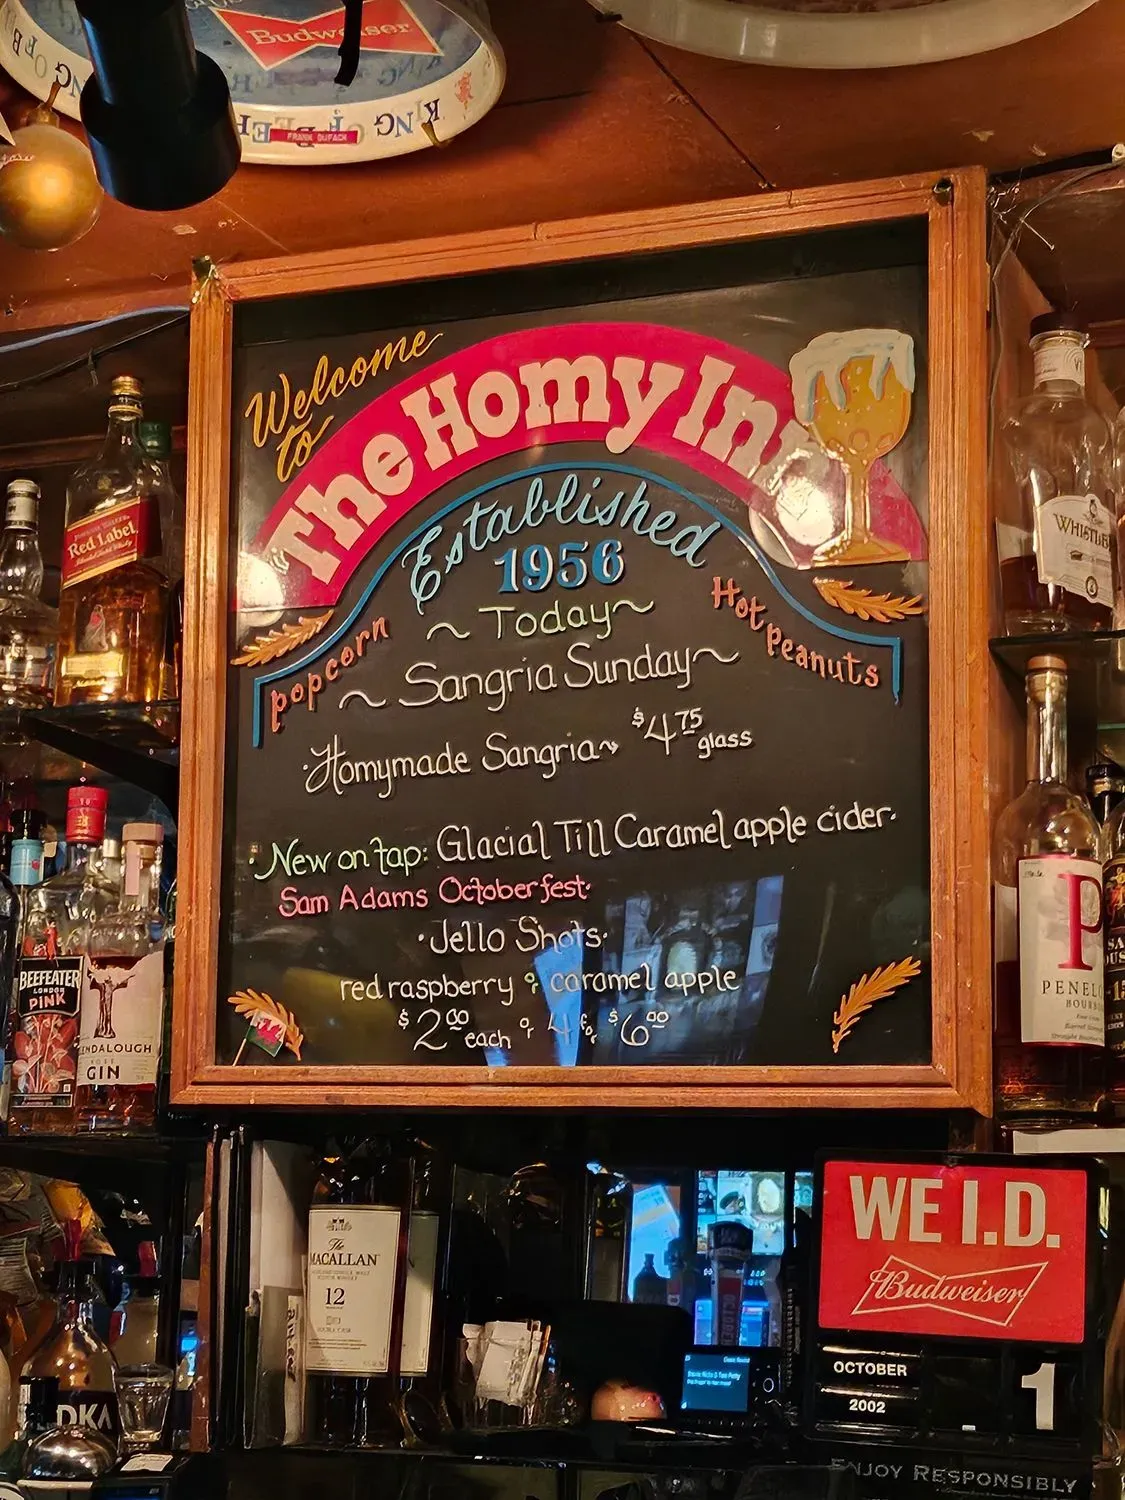 Budweiser
KING OF BEERS
KING
FRANK DUFACK
Welcome
to
The Homy Inn
Established
1956
popcorn
Hot Peanuts
~ Today ~
~ Sangria Sunday ~
·Homymade Sangria~ $4.75 glass
·New on tap: Glacial Till Caramel apple cider·
Sam Adams Octoberfest·
·Jello Shots·
red raspberry or caramel apple
$2.00 each or 4 for $6.00
Red Label
WHISTLE
BEEFEATER
LONDON
PINK
ENDALOUGH
ROSE
GIN
P
PENEL
BOURB
The
MACALLAN
12
DKA
WE I.D.
Budweiser
OCTOBER
2002
1
ENJOY RESPONSIBLY